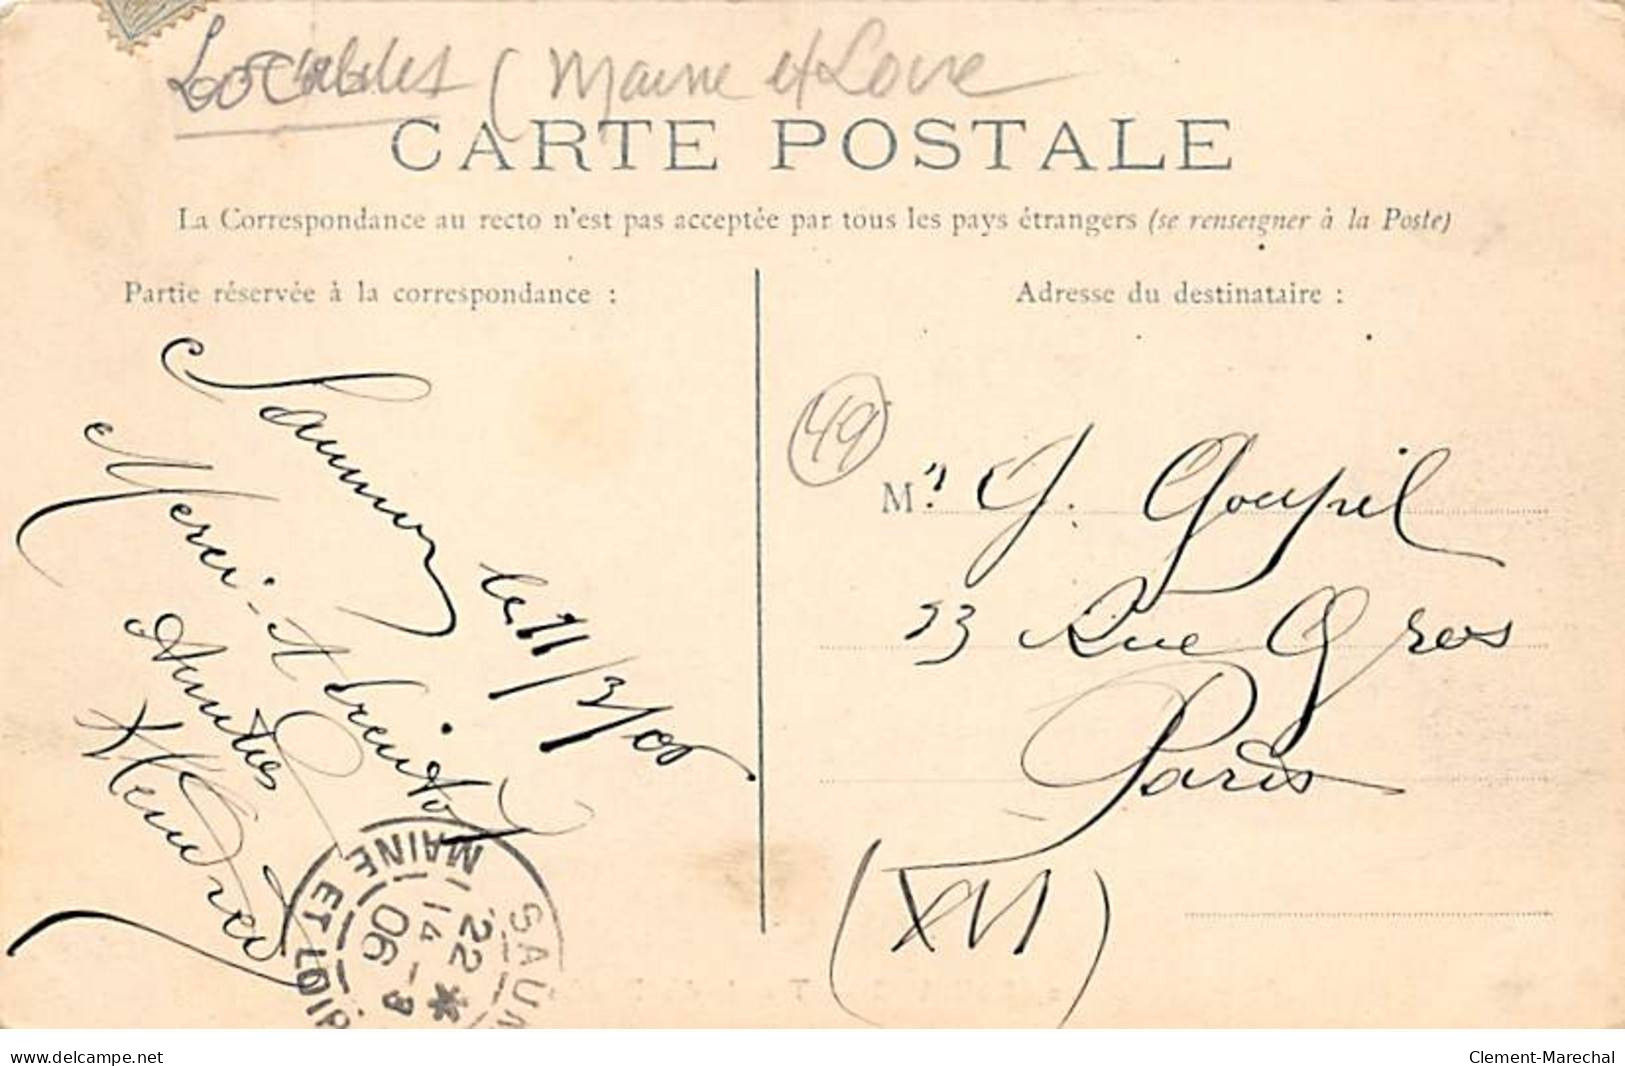 (Maine et Loire
CARTE POSTALE
La Correspondance au recto n'est pas acceptée par tous les pays étrangers (se renseigner à la Poste)
Partie réservée à la correspondance :
Saumur
le 11/3/06
Merci. A bientôt
Amitiés
Adresse du destinataire :
49
Mr G. Goupil
23 Rue Gros
Paris
(XVI)
SAUM
MAINE ET LOIR
22
14 - 3
06
delcampe.net
Clement-Marechal